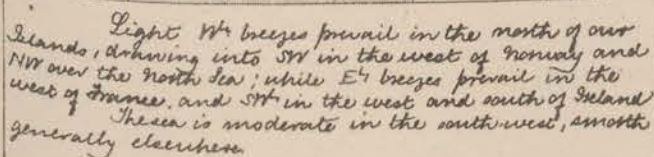 Light Wly breezes prevail in the north of our
Islands, drawing into SW in the west of Norway and
NW over the North Sea; while Ely breezes prevail in the
west of France, and SWly in the west and south of Ireland
The sea is moderate in the south-west, smooth
generally elsewhere.